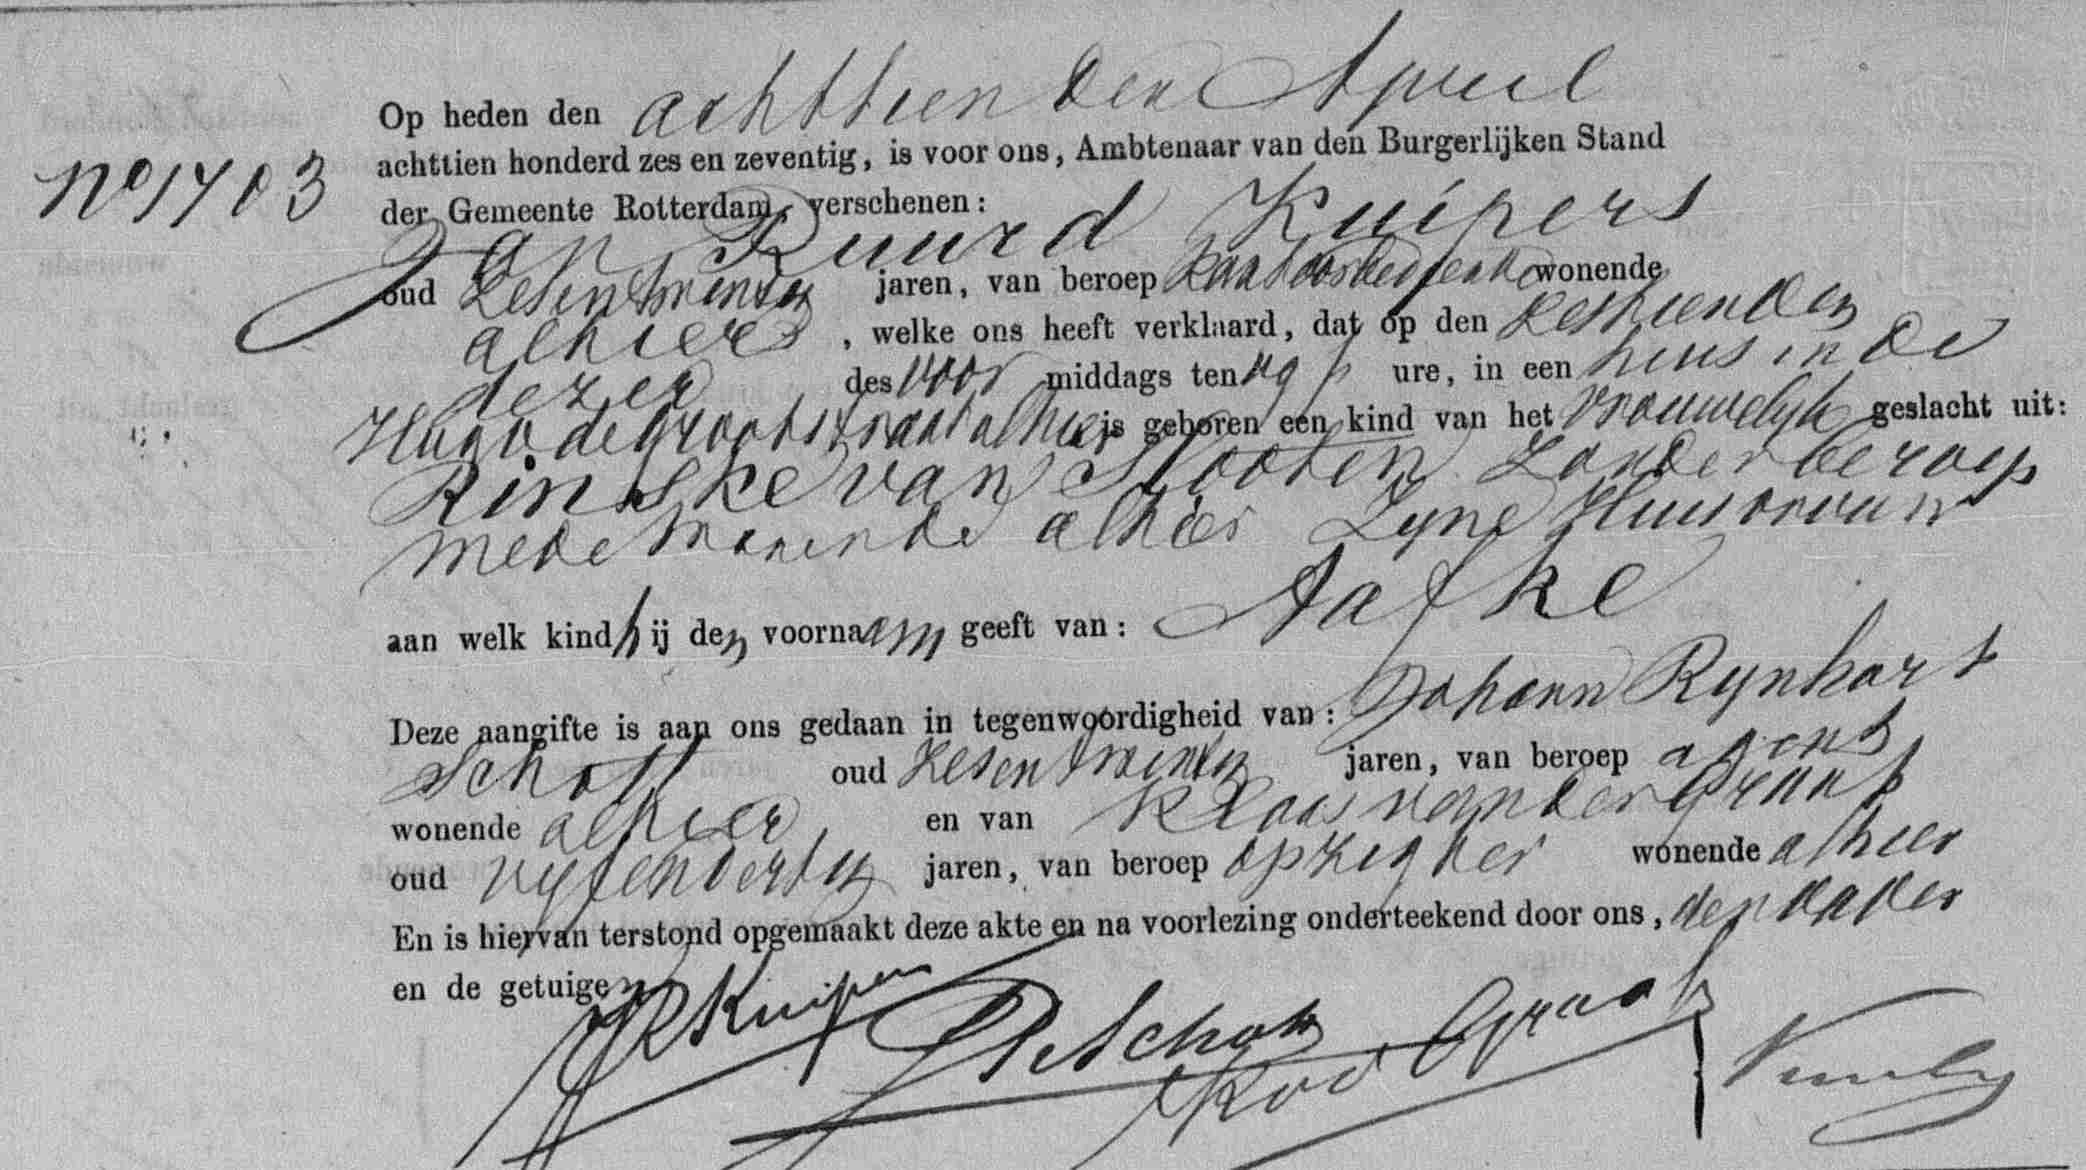 Op heden den achttienden April
No 1403
achttien honderd zes en zeventig, is voor ons, Ambtenaar van den Burgerlijken Stand
der Gemeente Rotterdam, verschenen:
Jan Ruurd Kuipers
oud Zesentwintig jaren, van beroep Kantoorbediende wonende
alhier, welke ons heeft verklaard, dat op den zestienden
dezer des voor middags ten ure, in een huis in de
Hugo de Grootstraat alhier is geboren een kind van het vrouwelijk geslacht uit:
Rinske van Slooten Zonder beroep
mede wonende alhier Zyne Huisvrouw
aan welk kind hij den voornaam geeft van: Aafke
Deze aangifte is aan ons gedaan in tegenwoordigheid van: Johann Rynhart
Schott oud Zesentwintig jaren, van beroep agent
wonende alhier en van Klaas van der Graaf
oud vyfendertig jaren, van beroep opzigter wonende alhier
En is hiervan terstond opgemaakt deze akte en na voorlezing onderteekend door ons, den vader
en de getuigen
JR Kuipers JR Schott K v d Graaf